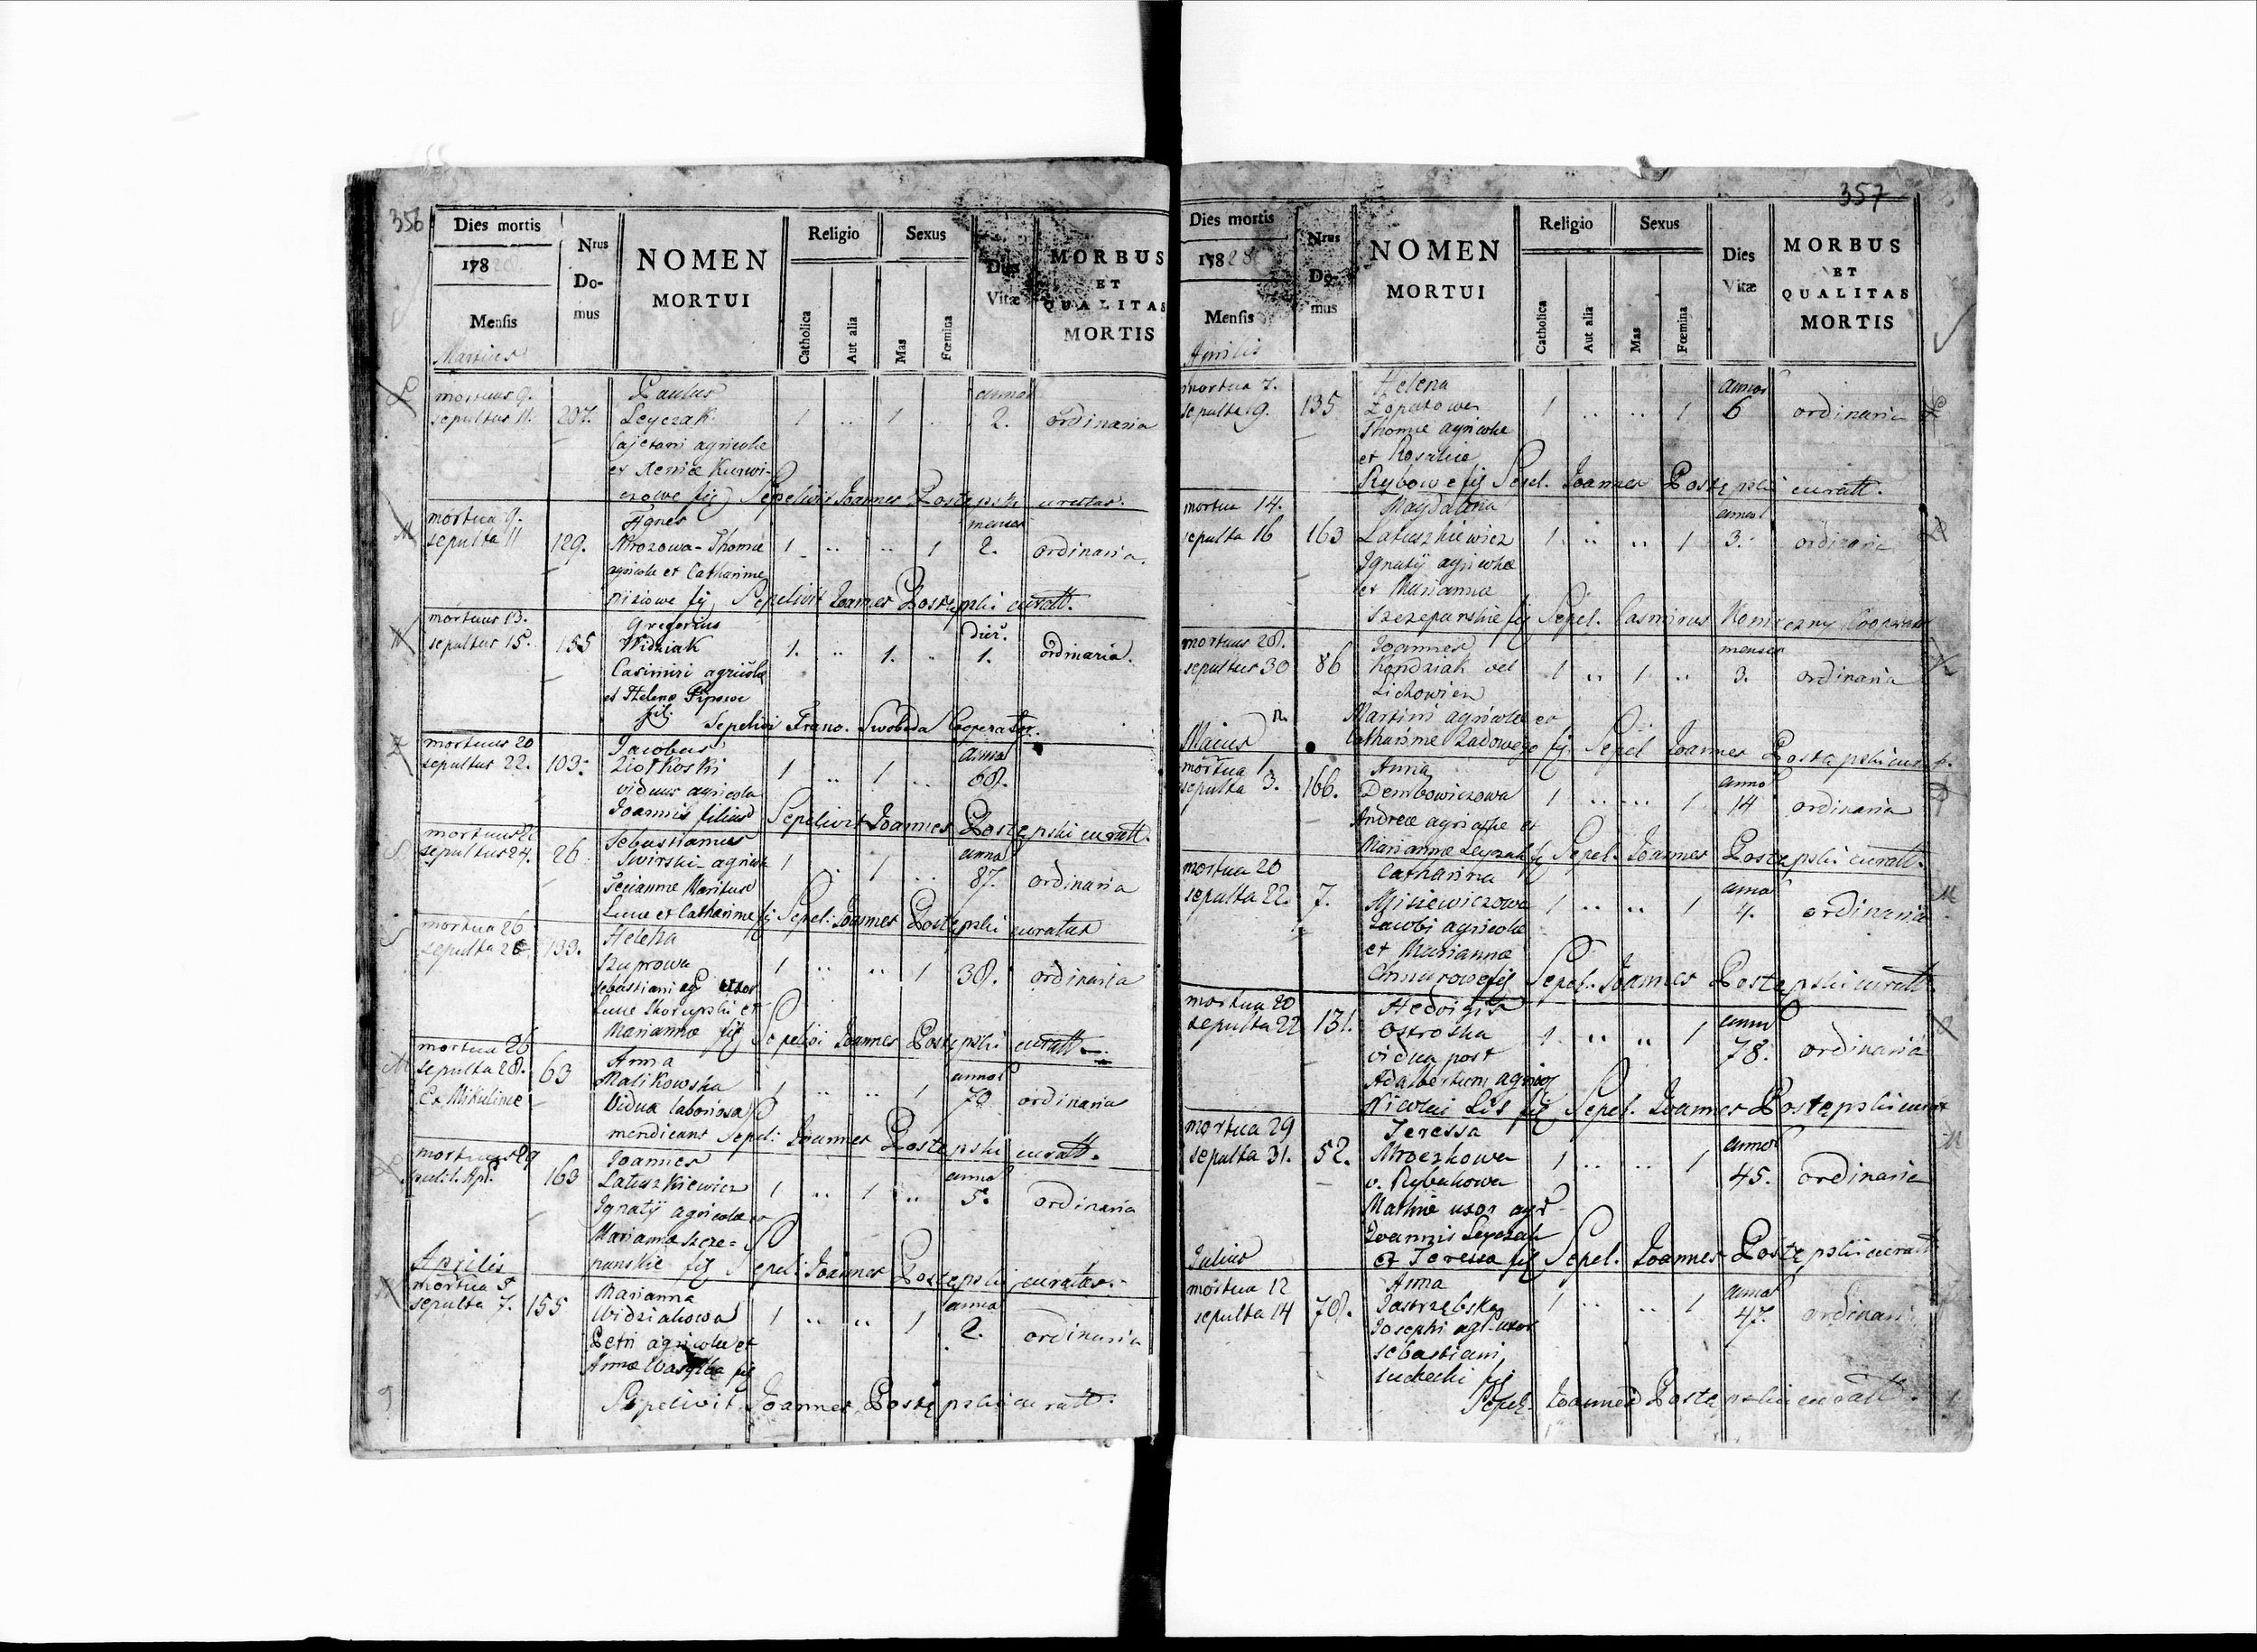 356
Dies mortis
Nrus
Do-
mus
NOMEN
MORTUI
Religio
Sexus
Dies
Vitæ
MORBUS
ET
QUALITAS
MORTIS
178
Mensis
Catholica
Aut alia
Mas
Fœmina
Martius
mortuus 9. Paulus annos
sepultus 11. 207. Leyczak 1 .. 1 .. 2. ordinaria
Cajetani agricolæ
et Xeniæ Kurwi-
czowe fij Sepelivit Joannes Postępski curatus.
mortua 9. Agnes menses
sepulta 11 129. Mrozowa - Thomæ 1 .. .. 1 2. ordinaria
agricolæ et Catharinæ
fij Sepelivit Joannes Postępski curatt.
mortuus 13. Gregorius dier.
sepultus 15. 155 Widziak 1. .. 1. .. 1. ordinaria.
Casimiri agricolæ
et Helenæ Pipowe
fili Sepelivi Franc. Swoboda Cooperator.
mortuus 20 Jacobus annos
sepultus 22. 103. Ziołkoski 1 .. 1 .. 68.
viduus agricola
Joannis filius Sepelivit Joannes Postępski curatt.
mortuus 22 Sebastianus annos
sepultus 24. 26. Swirski agricola 1 .. 1 .. 87. ordinaria
Maritus
Lucæ et Catharinæ fij Sepel: Joannes Postępski curatus
mortua 26 Helena
sepulta 28 133. Szuprowa 1 .. .. 1 38. ordinaria
Sebastiani ag uxor
Lucæ Skorupski et
Mariannæ fij Sepelivi Joannes Postępski curatt.
mortua 26 Anna annos
sepulta 28. 63 Malikowska 1 .. .. 1 70 ordinaria
Ex Mikulince Vidua laboriosa
mendicans Sepel: Joannes Postępski curatt.
mortuus 29 Joannes annos
sepult. 1. Apr. 163 Latuszkiewicz 1 .. 1 .. 5. ordinaria
Ignatij agricolæ et
Mariannæ Szcze=
Aprilis panskie fij Sepel: Joannes Postępski curatus.
mortua 5 Marianna annos
sepulta 7. 155 Widziakowa 1 .. .. 1 2. ordinaria
Petri agricolæ et
Annæ fij
Sepelivit Joannes Postępski curatt.
357
Dies mortis
Nrus
Do-
mus
NOMEN
MORTUI
Religio
Sexus
Dies
Vitæ
MORBUS
ET
QUALITAS
MORTIS
178
Mensis
Catholica
Aut alia
Mas
Fœmina
Aprilis
mortua 7. Helena annos
sepulta 9. 135 1 .. .. 1 6 ordinaria
Thomæ agricolæ
et Rosaliæ
Rybowe fij Sepel. Joannes Postępski curatt.
mortua 14. Magdalena annos
sepulta 16 163 Latuszkiewicz 1 .. .. 1 3. ordinaria
Ignatij agricolæ
et Marianna
Szczepanskie fij Sepel. Casmirus Cooperator
mortuus 28. Joannes menses
sepultus 30 86 Kondziak vel 1 .. 1 .. 3. ordinaria
Lichowicz
Martini agricolæ et
Maius Catharinæ fij. Sepel Joannes Postępski curatt.
mortua 1. Anna annos
sepulta 3. 166. Dembowiczowa 1 .. .. 1 14 ordinaria
Andreæ agricolæ et
Mariannæ Leyczak fij Sepel. Joannes Postępski curatt.
mortua 20 Catharina annos
sepulta 22. 7. Misiewiczowa 1 .. .. 1 4. ordinaria
Jacobi agricolæ
et Mariannæ
Chmurowe fij Sepel. Joannes Postępski curatt.
mortua 20 Hedvigis annos
sepulta 22 131. Ostroska 1. .. .. 1 78. ordinaria
vidua post
Adalbertum agricol
Nicolai Lis fij Sepel. Joannes Postępski curatt
mortua 29 Teressa annos
sepulta 31. 52. Mroczkowa 1 .. .. 1 45. ordinaria
v. Rybakowa
Mathiæ uxor agr
Joannis Leyczak
Julius et Teressa fij Sepel. Joannes Postępski curatt
mortua 12 Anna annos
sepulta 14 78. Jastrzębska 1 .. .. 1 47. ordinari
Josephi agr. uxor
Sebastiani
Suchecki fij
Sepel. Joannes Postępski curatt.